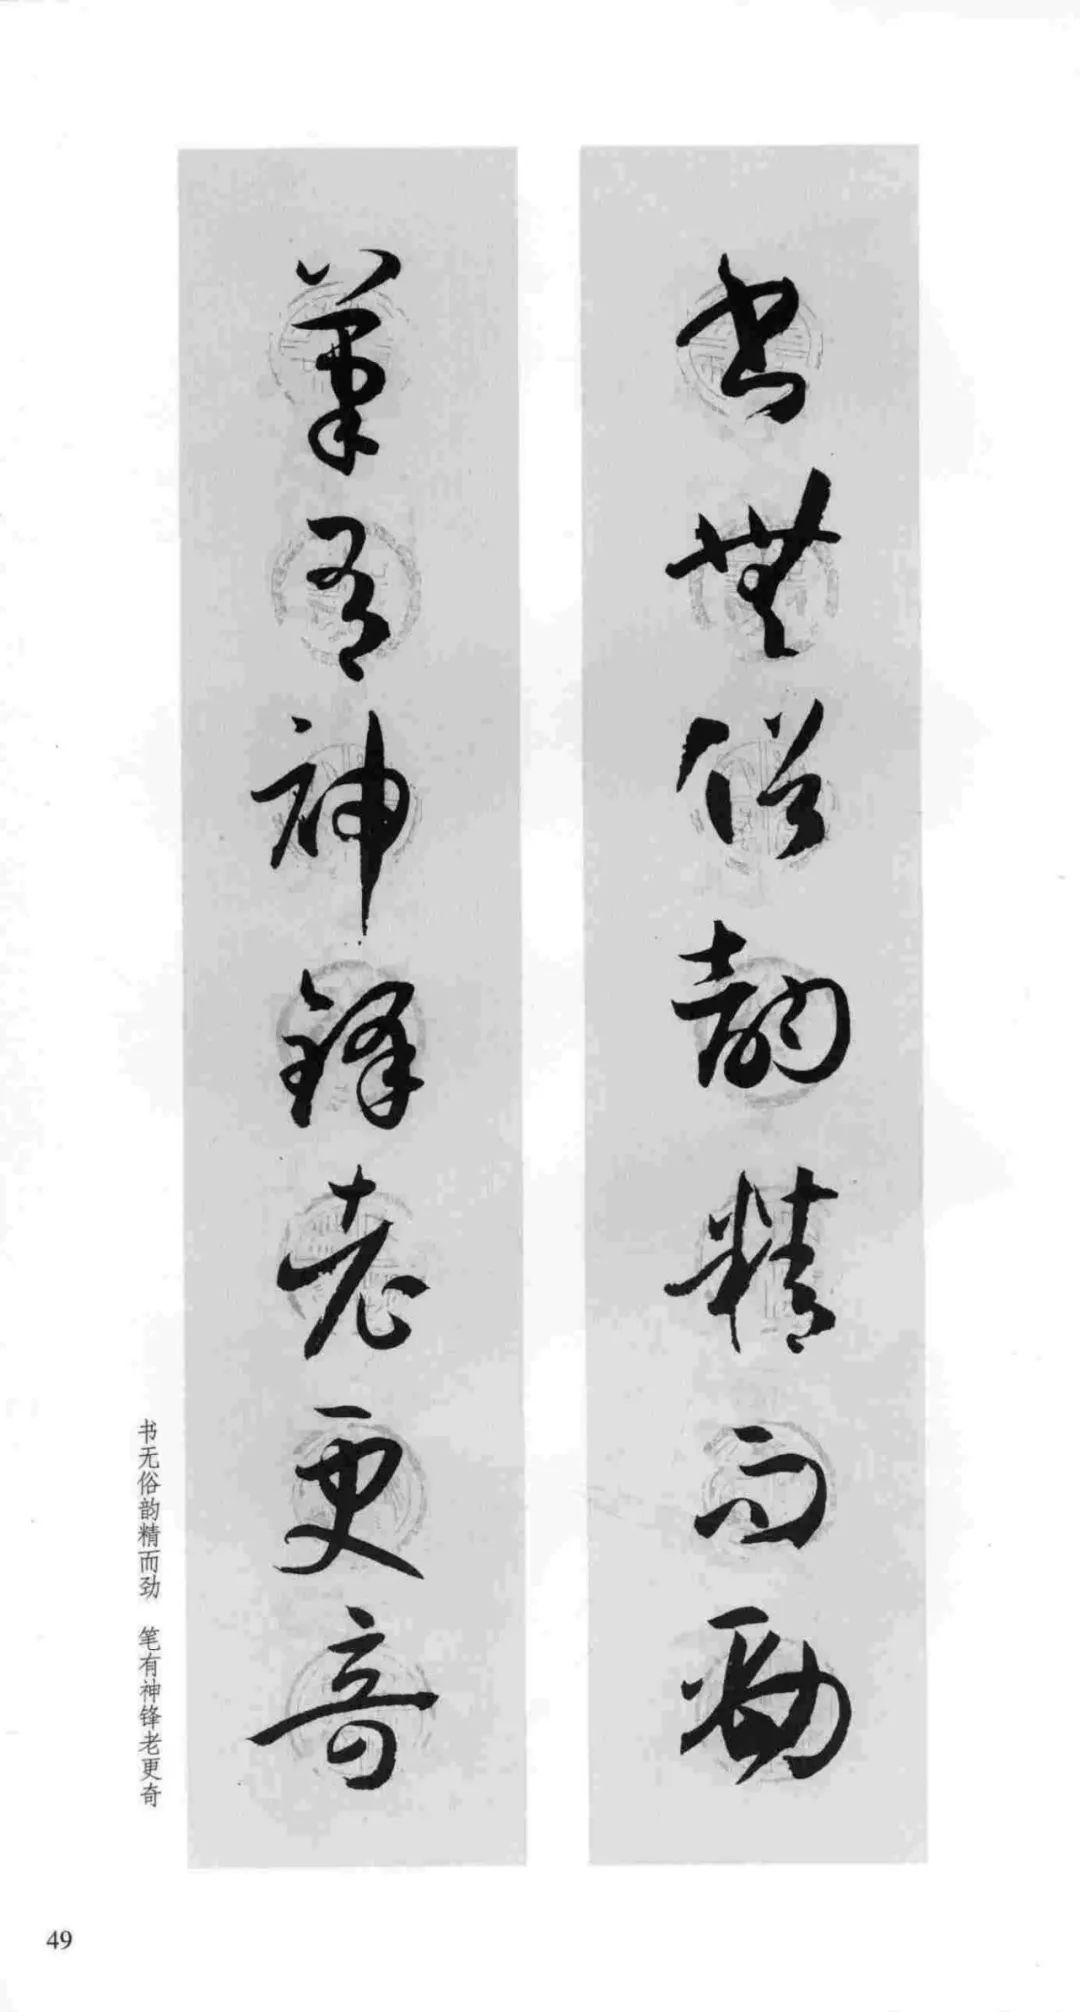 書無俗韵精而勁
筆有神鋒老更奇
书无俗韵精而劲 笔有神锋老更奇
49